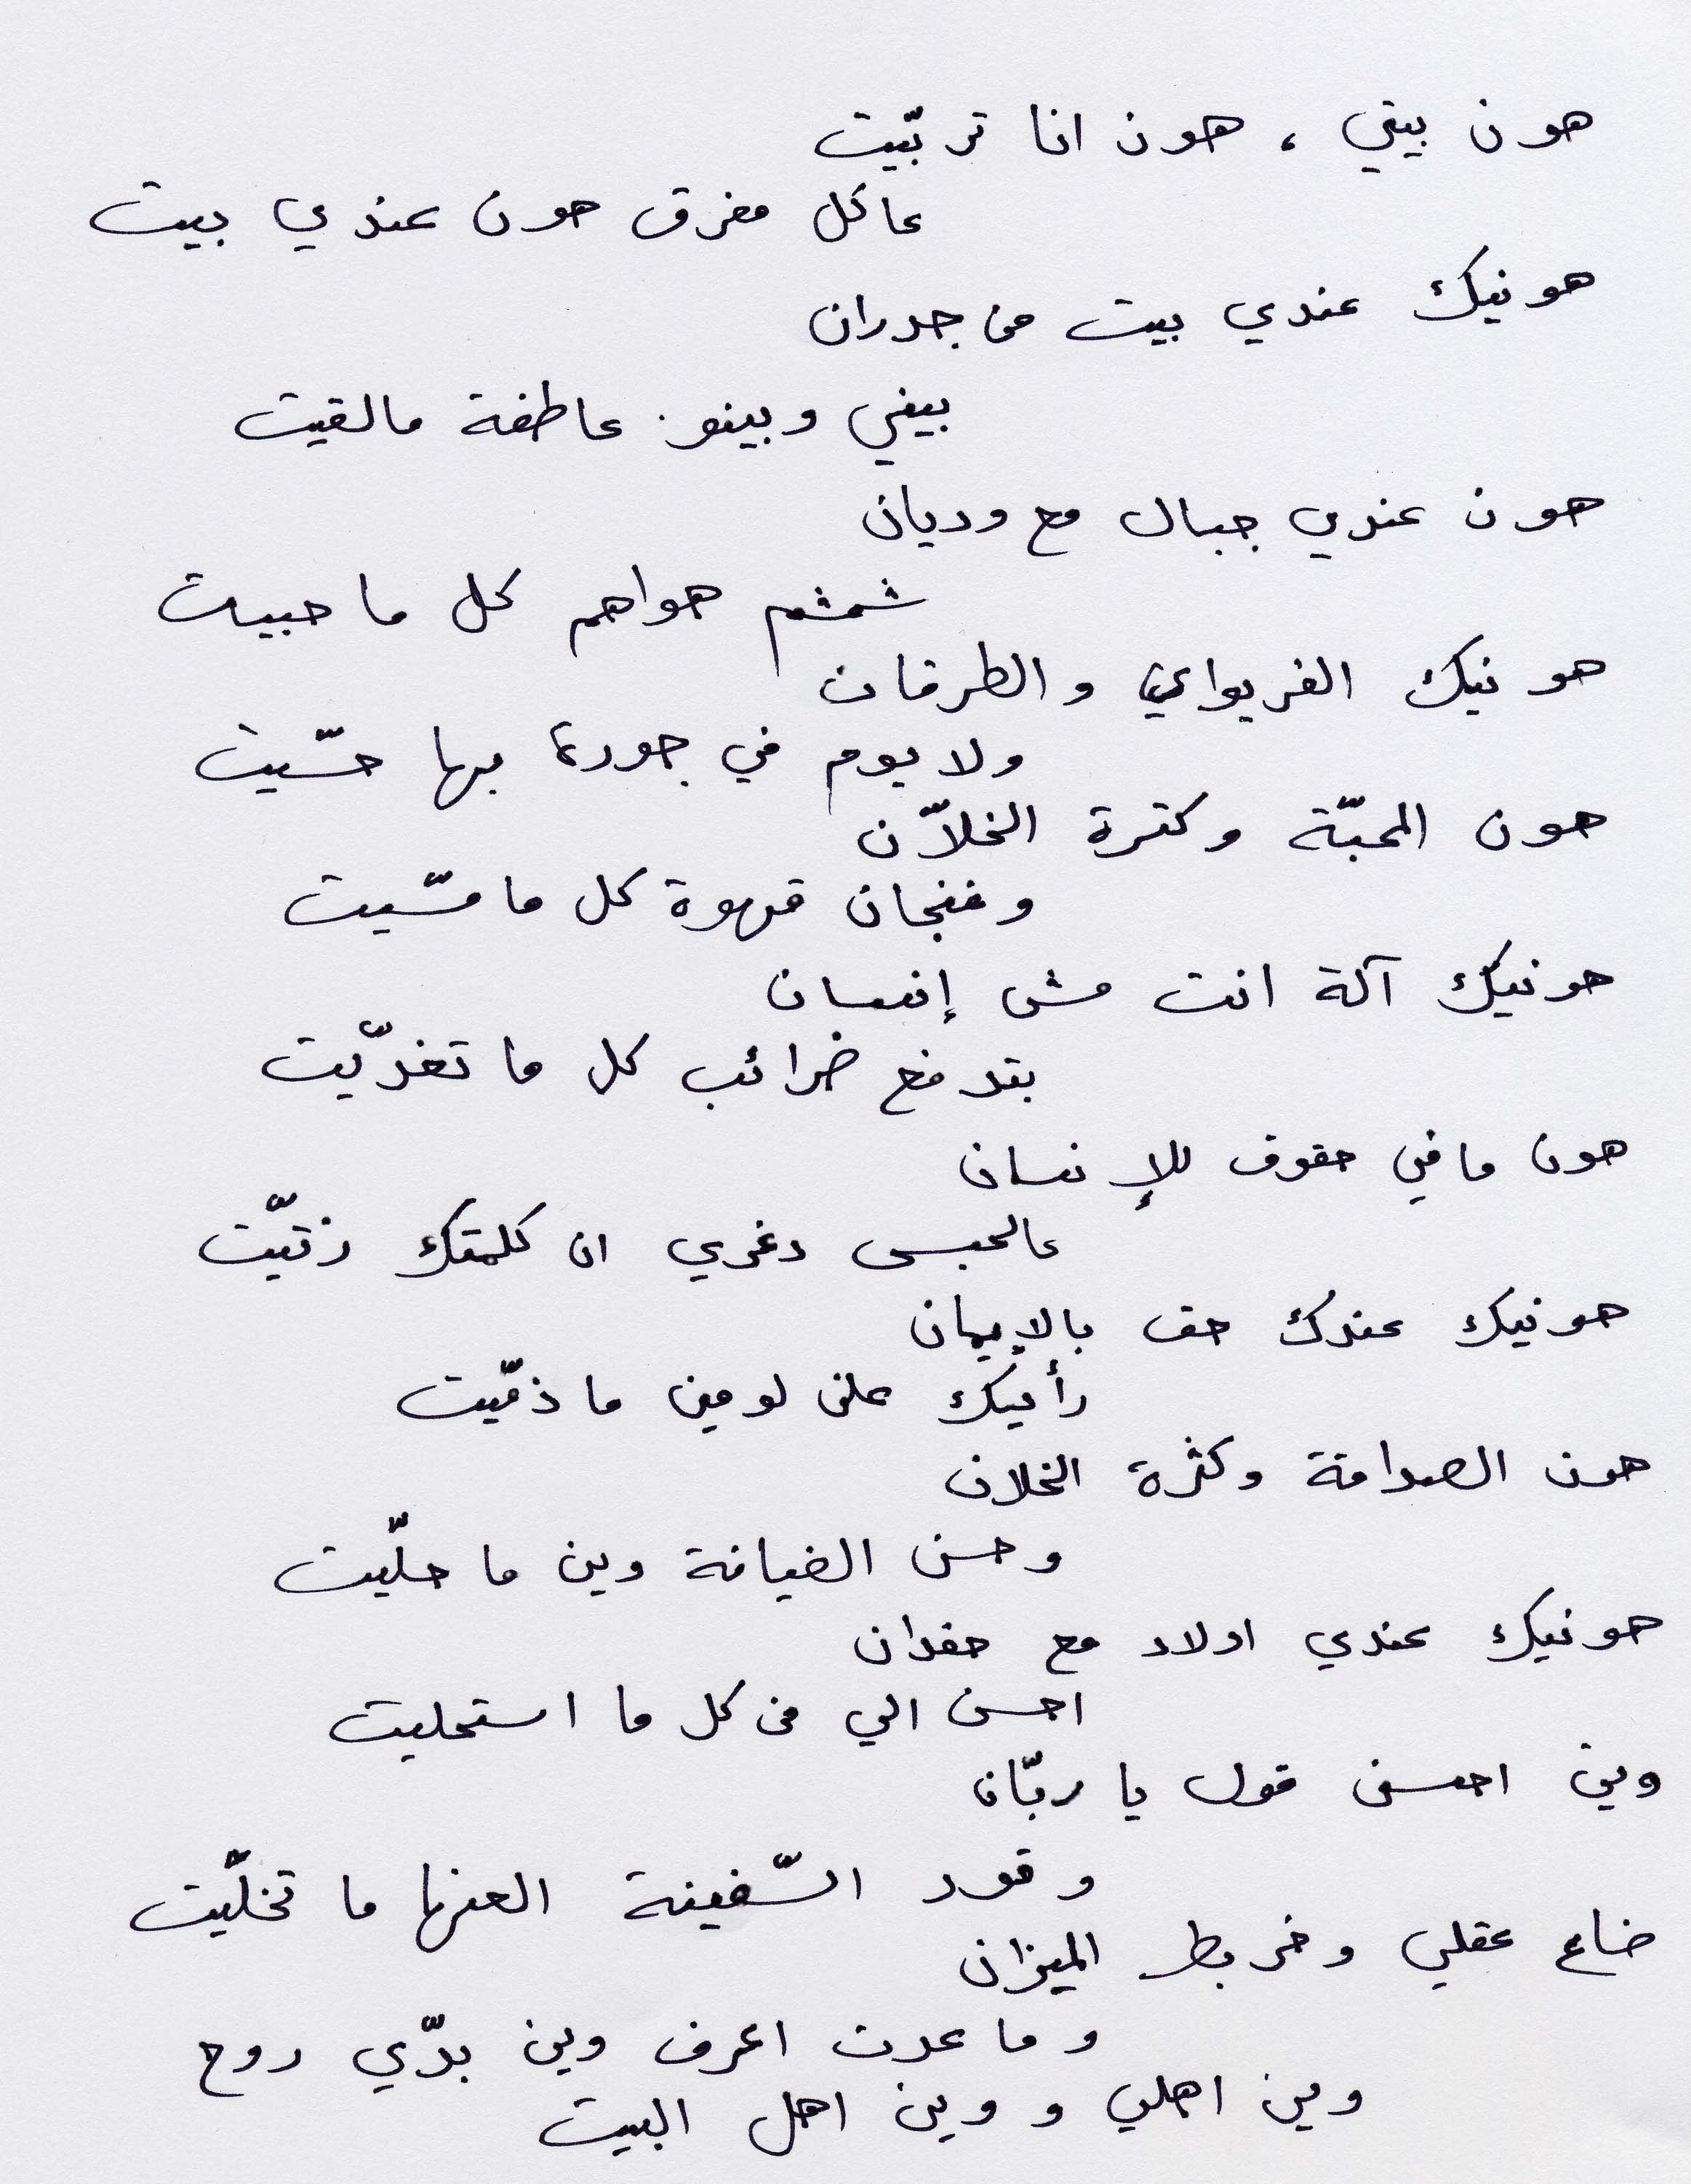 هون بيتي ، هون انا تربّيت
عاكل مفرق هون عندي بيت
هونيك عندي بيت من جدران
بيني وبينو عاطفة مالقيت
هون عندي جبال مع وديان
شمشم هواهم كل ما حبيت
هونيك الفريواي والطرقان
ولا يوم في جورة بها حسّيت
هون المحبّة وكترة الخلاّن
وفنجان قهوة كل ما مسّيت
هونيك آلة انت مش إنسان
بتدفع ضرائب كل ما تغدّيت
هون مافي حقوق للإنسان
عالحبس دغري ان كلمتك زتيّت
هونيك عندك حق بالإيمان
رأييك على لومين ما ذمّيت
هون الصداقة وكثرة الخلان
وحسن الضيافة وين ما حلّيت
هونيك عندي اولاد مع حفدان
احسن الي من كل ما استحليت
وين احسن قول يا ربّان
وقود السّفينة العنها ما تخلّيت
ضاع عقلي وخربط الميزان
وما عدت اعرف وين بدّي روح
وين اهلي و وين اهل البيت